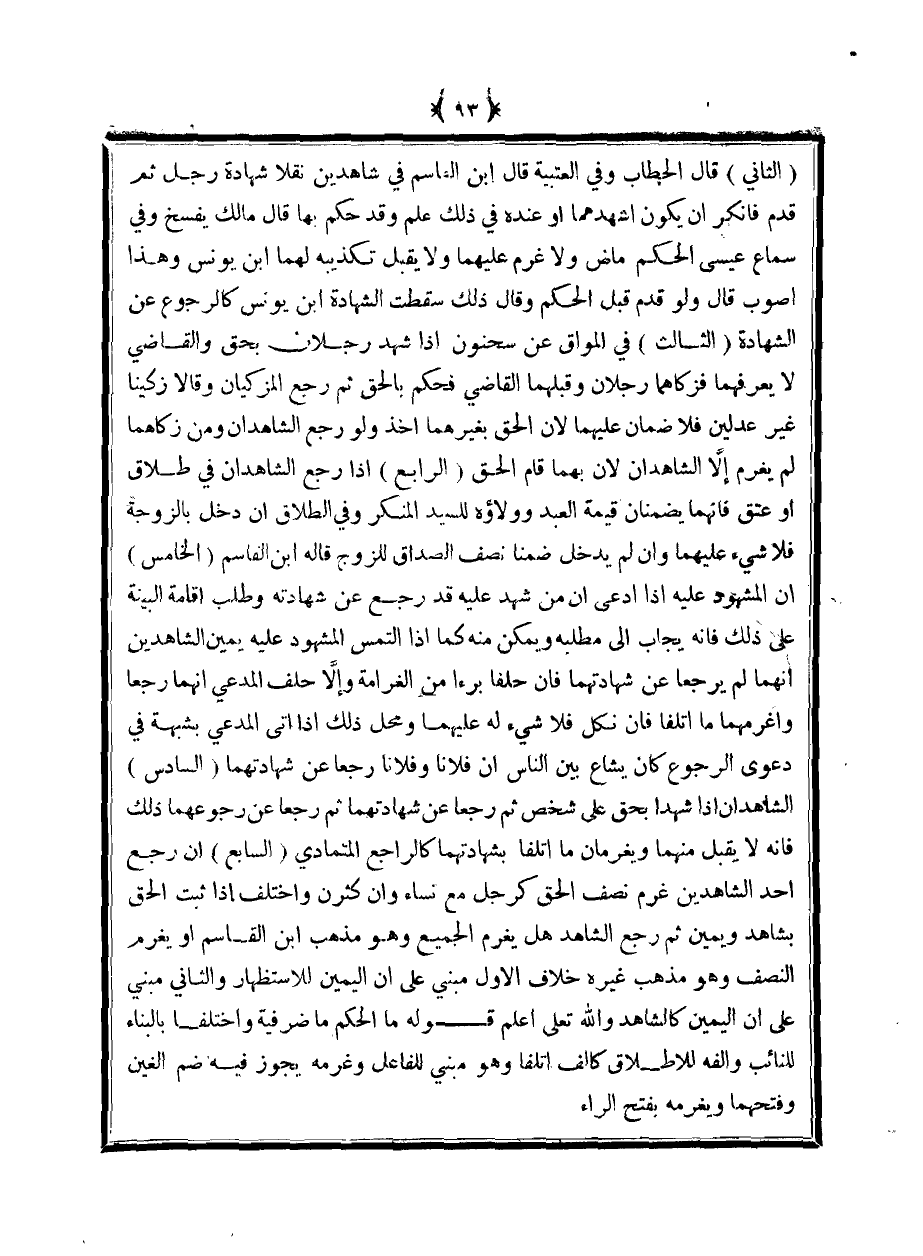 ﴿ ٩٣ ﴾
( الثاني ) قال الحطاب وفي العتبية قال ابن القاسم في شاهدين نقلا شهادة رجل ثم
قدم فانكر ان يكون اشهدهما او عنده في ذلك علم وقد حكم بها قال مالك يفسخ وفي
سماع عيسى الحكم ماض ولا غرم عليهما ولا يقبل تكذيبه لهما ابن يونس وهذا
اصوب قال ولو قدم قبل الحكم وقال ذلك سقطت الشهادة ابن يونس كالرجوع عن
الشهادة ( الثالث ) في المواق عن سحنون اذا شهد رجلان بحق والقاضي
لا يعرفهما فزكاهما رجلان وقبلهما القاضي فحكم بالحق ثم رجع المزكيان وقالا زكينا
غير عدلين فلا ضمان عليهما لان الحق بغيرهما اخذ ولو رجع الشاهدان ومن زكاهما
لم يغرم إلَّا الشاهدان لان بهما قام الحق ( الرابع ) اذا رجع الشاهدان في طلاق
او عتق فانهما يضمنان قيمة العبد وولاؤه للسيد المنكر وفي الطلاق ان دخل بالزوجة
فلا شيء عليهما وان لم يدخل ضمنا نصف الصداق للزوج قاله ابن القاسم ( الخامس )
ان المشهود عليه اذا ادعى ان من شهد عليه قد رجع عن شهادته وطلب اقامة البينة
على ذلك فانه يجاب الى مطلبه ويمكن منه كما اذا التمس المشهود عليه يمين الشاهدين
أنهما لم يرجعا عن شهادتهما فان حلفا برءا من الغرامة وإلَّا حلف المدعي انهما رجعا
واغرمهما ما اتلفا فان نكل فلا شيء له عليهما ومحل ذلك اذا اتى المدعي بشبهة في
دعوى الرجوع كان يشاع بين الناس ان فلانا وفلانا رجعا عن شهادتهما ( السادس )
الشاهدان اذا شهدا بحق على شخص ثم رجعا عن شهادتهما ثم رجعا عن رجوعهما ذلك
فانه لا يقبل منهما ويغرمان ما اتلفا بشهادتهما كالراجع المتمادي ( السابع ) ان رجع
احد الشاهدين غرم نصف الحق كرجل مع نساء وان كثرن واختلف اذا ثبت الحق
بشاهد ويمين ثم رجع الشاهد هل يغرم الجميع وهو مذهب ابن القاسم او يغرم
النصف وهو مذهب غيره خلاف الاول مبني على ان اليمين للاستظهار والثاني مبني
على ان اليمين كالشاهد والله تعلى اعلم قوله ما الحكم ما ضرفية واختلفا بالبناء
للنائب والفه للاطلاق كالف اتلفا وهو مبني للفاعل وغرمه يجوز فيه ضم الغين
وفتحهما ويغرمه بفتح الراء